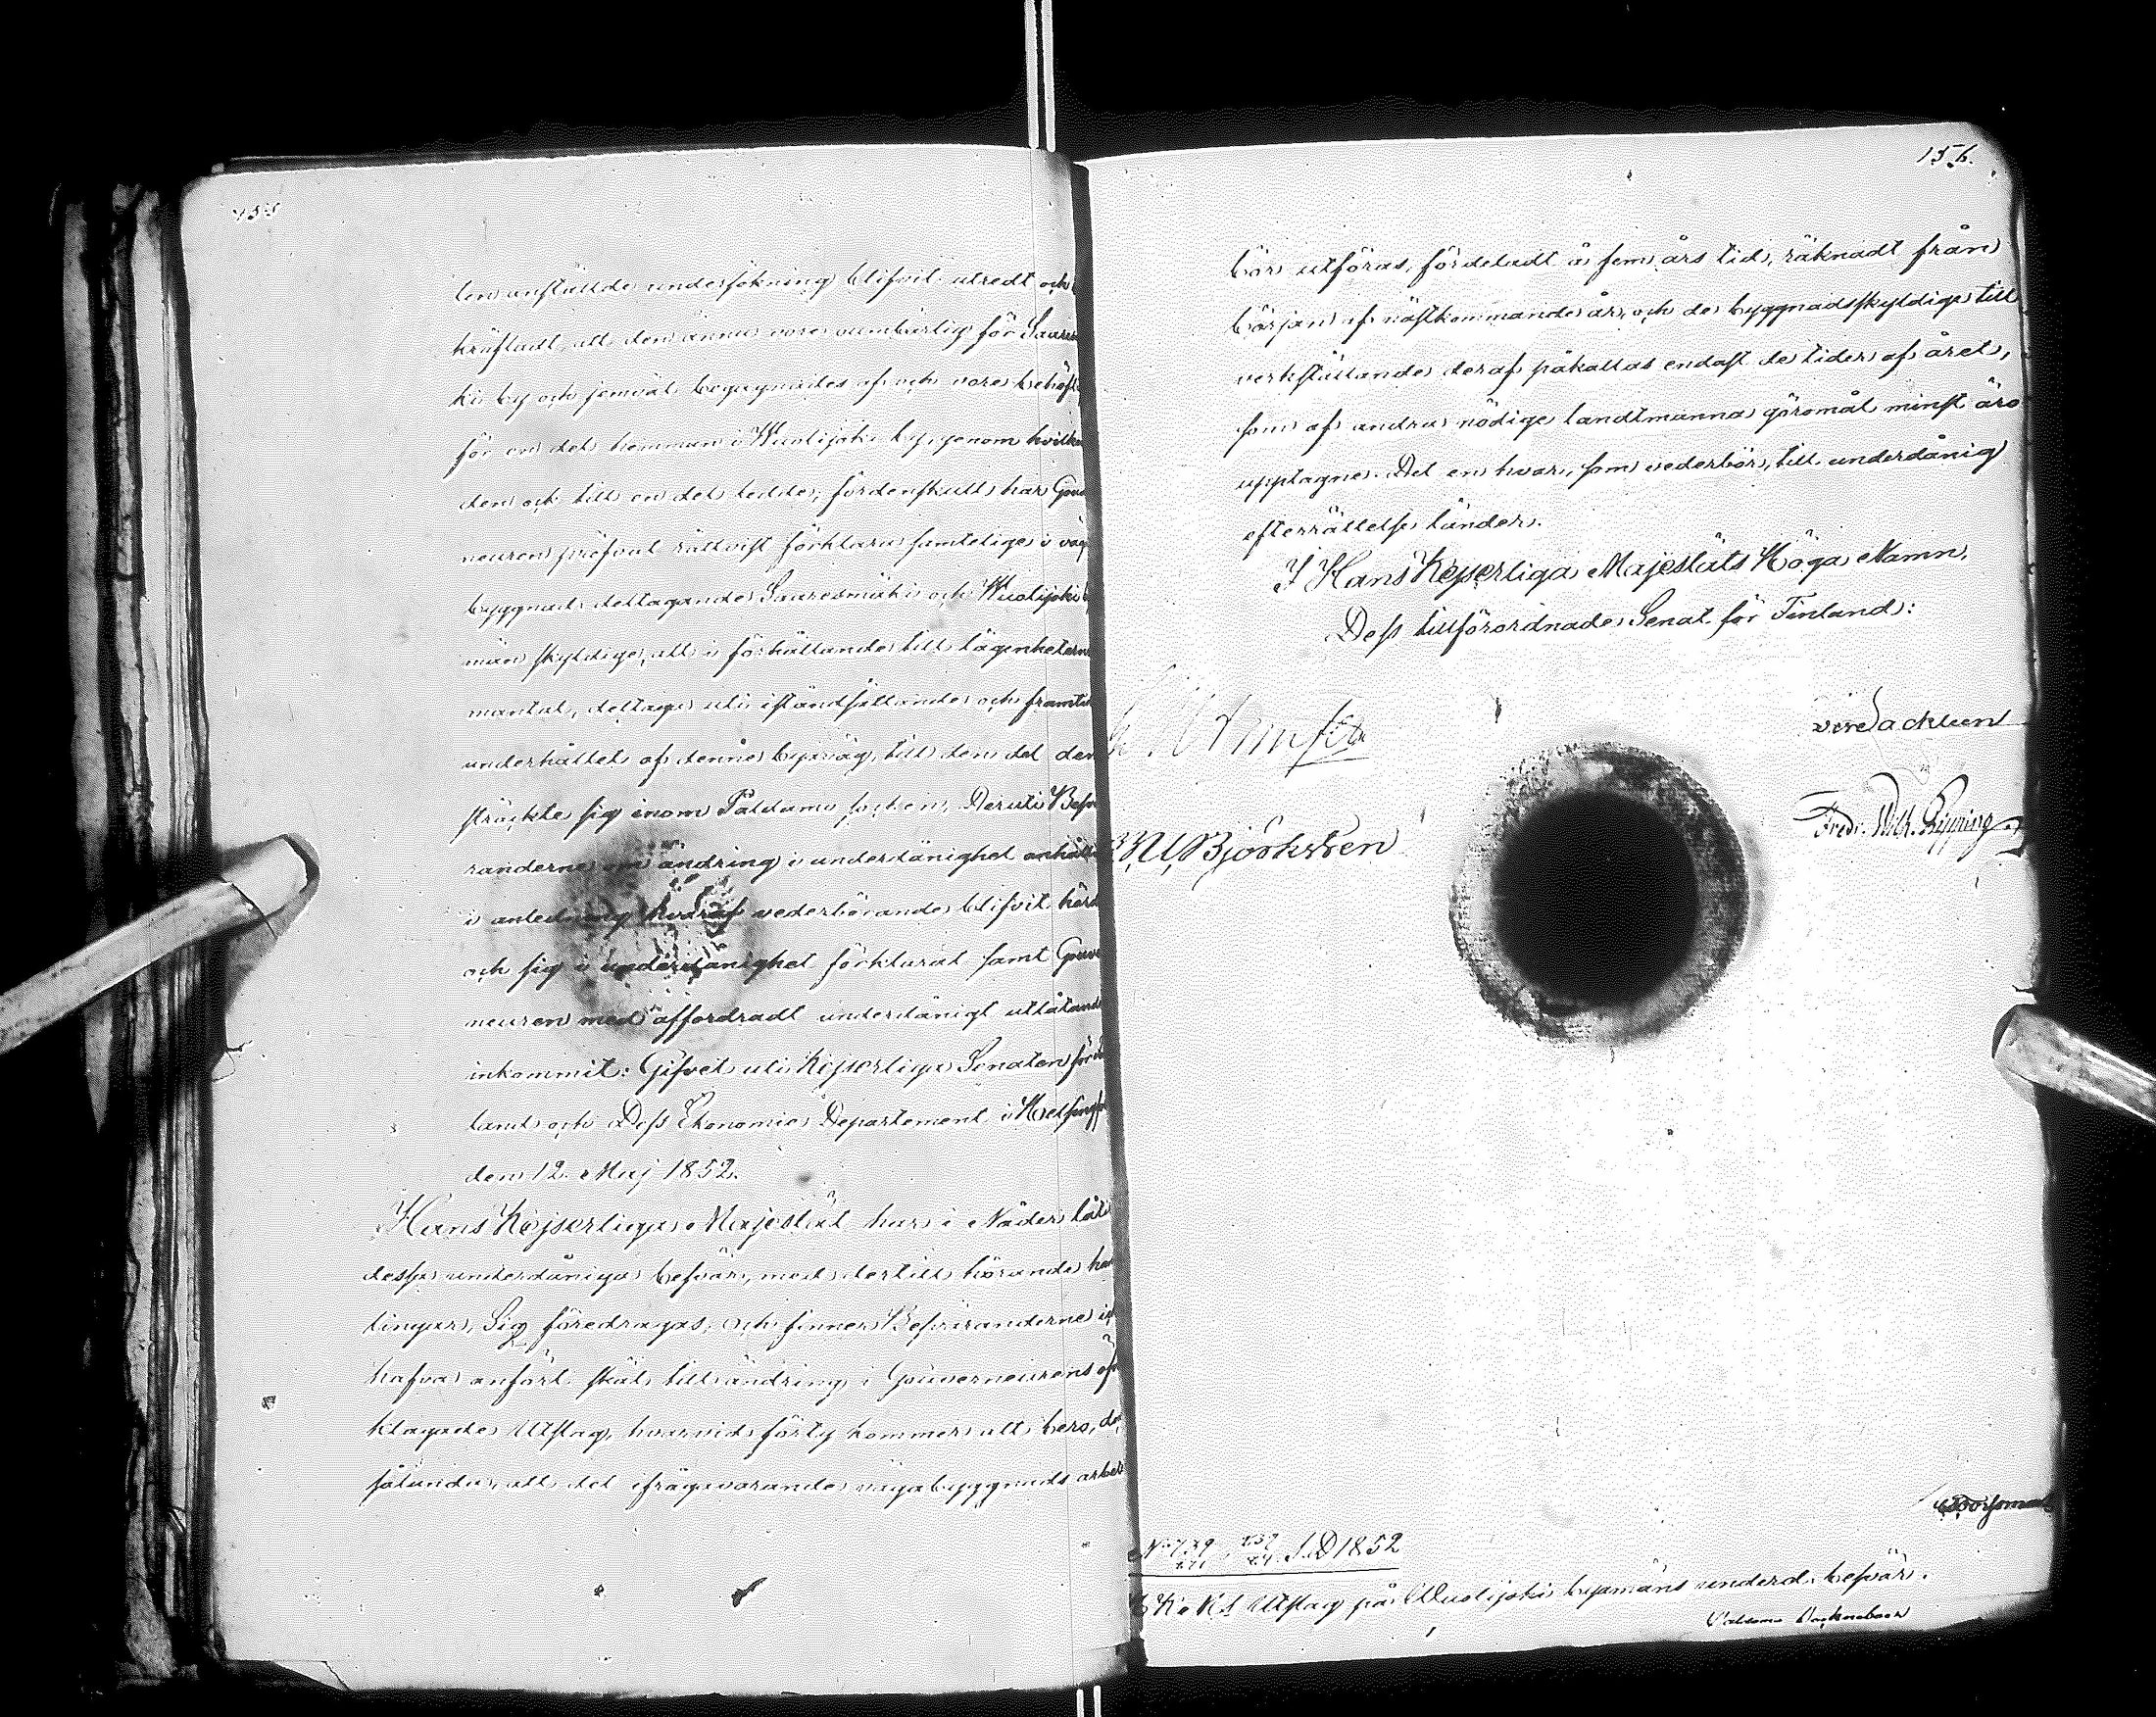 155
ten anstälde undersökning blifvit utredt och
kräftadt, att den ännu vore oumbärlig för Saares
ki by och jemväl begagnades af och vore behöfl
för en del hemman i Wuolijoki by, genom hvilken
den ock till en del ledde; fördenskull har Gouv
neuren pröfvat rättvist förklara samtelige i väg
byggnad deltagande Saaresmäki och Wuolijoki b
män skyldige, att i förhållande till lägenheterne
mantal, deltaga uti iståndsättande och framtid
underhållet af denne byaväg, till den del den
sträckte sig inom Paldamo socken; Deruti Besvä
randerne om ändring i underdånighet anhålli
i anledning hvaraf vederbörande blifvit hörd
och sig i underdånighet förklarat samt Gouve
neuren med äffordradt underdånigt utlåtande
inkommit: Gifvet uti Kejserliga Senaten för
land och Dess Ekonomie Departement i Helsingf
den 12 Maj 1852.
Hans Kejserliga Majestät har i Nåder låti
dessa underdåniga besvär, med dertill hörande han
lingar, Sig föredragas, och finner Besväranderne ic
hafva anfört skäl till ändring i Gouverneurens öf
klagade Utslag, hvarvid förty kommer att bero, do
sålunda, att det ifrågavarande vägabyggnads arbe
156.
bör utföras, fördeladt å fem års tid, räknadt från
början af nästkommande år, och de byggnadsskyldige till
verkställande deraf påkallas endast de tider af året,
som af andra nödige landtmanna göromål minst äro
upptagne. Det en hvar, som vederbör, till underdånig
efterrättelse länder.
I Hans Kejserliga Majestäts Höga Namn,
Dess tillförordnade Senat för Finland:
Fredr. Wilh. Pipping
Björksten
S. D 1852
K K S Utslag på Wuolijoki byamäns underd. besvär.